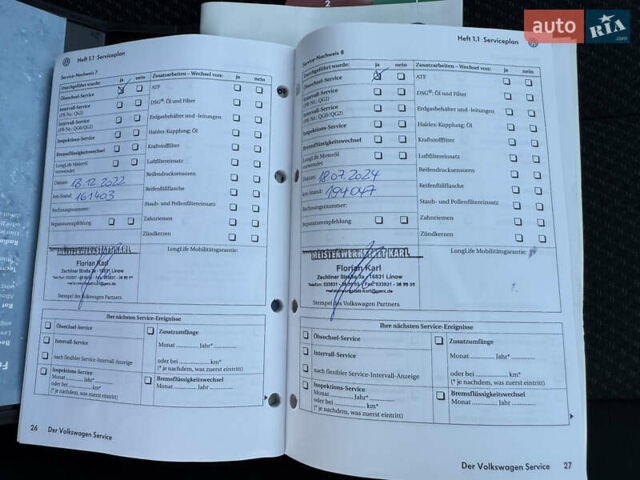 2
auto RIA.com
Heft 1.1 Serviceplan
Service-Nachweis 7
Durchgeführt wurde: ja nein
Ölwechsel-Service
Intervall-Service
(FB-Nr.: QG1)
Intervall-Service
(FB-Nr.: QG0/QG2)
Inspektions-Service
Bremsflüssigkeitswechsel
LongLife Motoröl
verwendet
Datum: 18.12.2022
km-Stand: 161403
Rechnungsnummer:
Reparaturempfehlung
Zusatzarbeiten – Wechsel von: ja nein
ATF
DSG: Öl und Filter
Erdgasbehälter und -leitungen
Haldex-Kupplung: Öl
Kraftstofffilter
Luftfiltereinsatz
Reifendrucksensoren
Reifenfüllflasche
Staub- und Pollenfiltereinsatz
Zahnriemen
Zündkerzen
MEISTERWERKSTATT KARL
Florian Karl
Zechliner Straße 2a - 16831 Linow
LongLife Mobilitätsgarantie:
Stempel des Volkswagen Partners
Ihre nächsten Service-Ereignisse
Ölwechsel-Service
Intervall-Service
nach flexibler Service-Intervall-Anzeige
Inspektions-Service
Monat Jahr*
oder bei km*
(* je nachdem, was zuerst eintritt)
Zusatzumfänge
Monat Jahr*
oder bei km*
(* je nachdem, was zuerst eintritt)
Bremsflüssigkeitswechsel
Monat Jahr
26 Der Volkswagen Service
Heft 1.1 Serviceplan
Service-Nachweis 8
Durchgeführt wurde: ja nein
Ölwechsel-Service
Intervall-Service
(FB-Nr.: QG1)
Intervall-Service
(FB-Nr.: QG0/QG2)
Inspektions-Service
Bremsflüssigkeitswechsel
LongLife Motoröl
verwendet
Datum: 18.07.2024
km-Stand: 194047
Rechnungsnummer:
Reparaturempfehlung
Zusatzarbeiten – Wechsel von: ja nein
ATF
DSG: Öl und Filter
Erdgasbehälter und -leitungen
Haldex-Kupplung: Öl
Kraftstofffilter
Luftfiltereinsatz
Reifendrucksensoren
Reifenfüllflasche
Staub- und Pollenfiltereinsatz
Zahnriemen
Zündkerzen
MEISTERWERKSTATT KARL
Florian Karl
Zechliner Straße 2a - 16831 Linow
LongLife Mobilitätsgarantie:
Stempel des Volkswagen Partners
Ihre nächsten Service-Ereignisse
Ölwechsel-Service
Intervall-Service
nach flexibler Service-Intervall-Anzeige
Inspektions-Service
Monat Jahr*
oder bei km*
(* je nachdem, was zuerst eintritt)
Zusatzumfänge
Monat Jahr*
oder bei km*
(* je nachdem, was zuerst eintritt)
Bremsflüssigkeitswechsel
Monat Jahr
Der Volkswagen Service 27